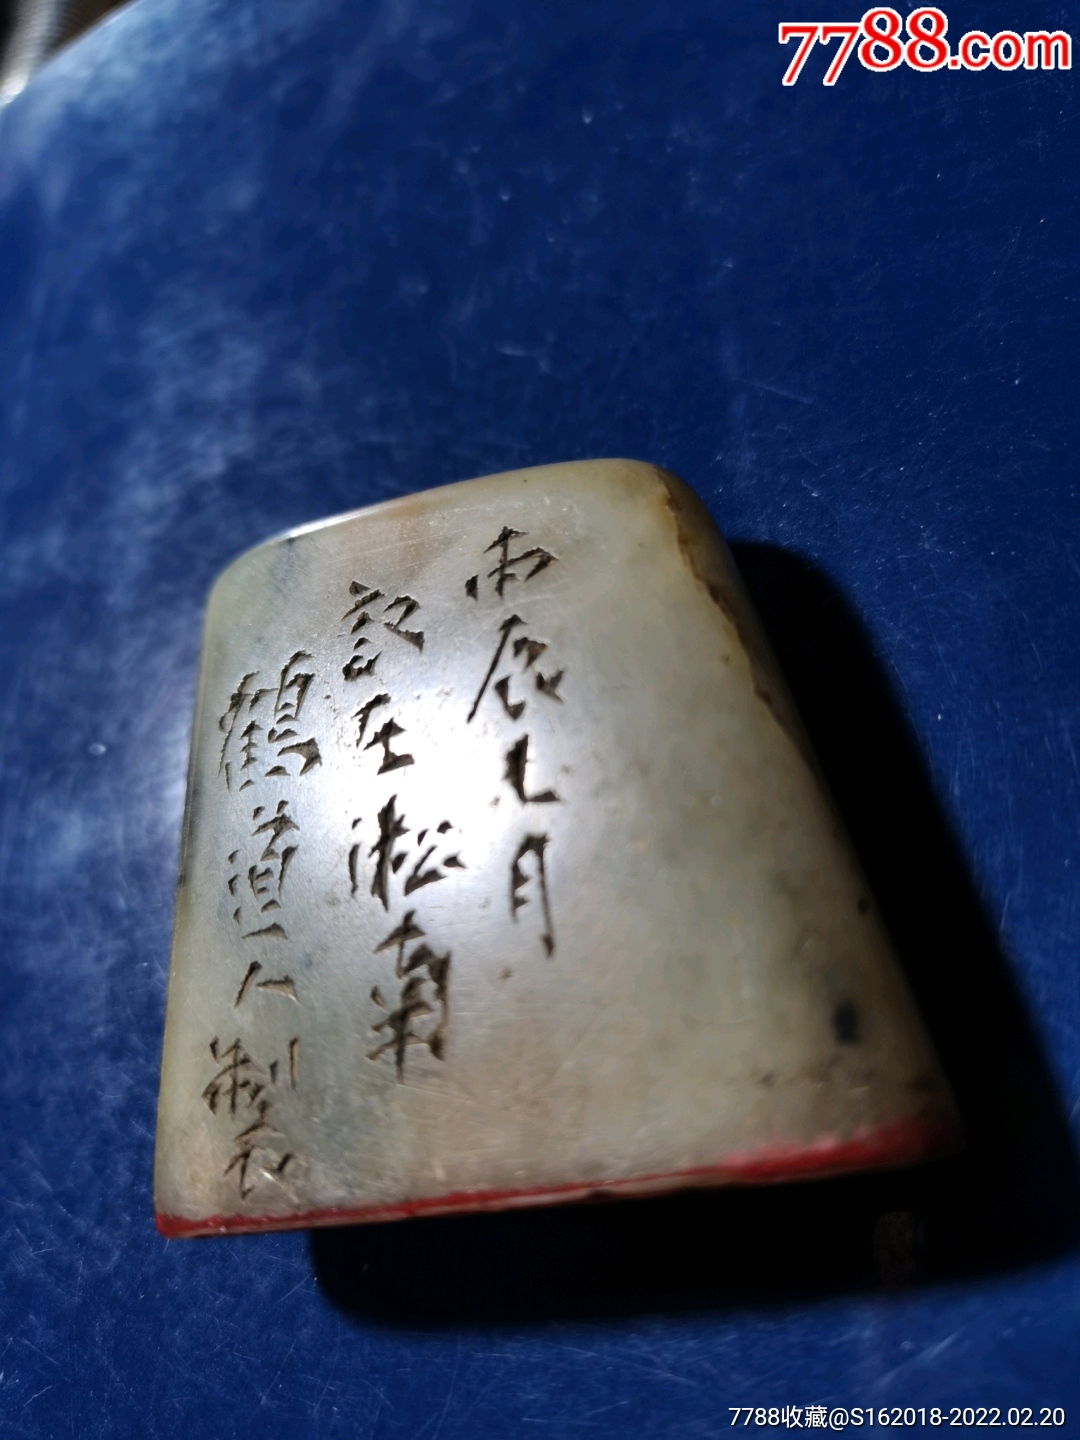 7788.com
丙辰七月
記在淞南
鶴道人製
7788收藏@S162018-2022.02.20